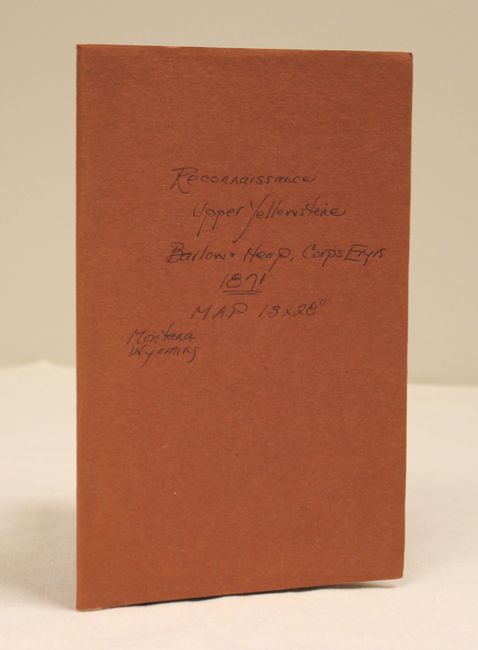 Reconnaissance
Upper Yellowstone
Barlow & Heap, Corps Engrs
1871
MAP 13x28"
Montana
Wyoming